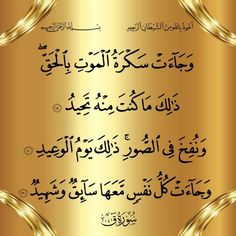 أعوذ بالله من الشيطان الرجيم
بسم الله الرحمن الرحيم
وَجَآءَتۡ سَكۡرَةُ ٱلۡمَوۡتِ بِٱلۡحَقِّۖ
ذَٰلِكَ مَا كُنتَ مِنۡهُ تَحِيدُ ١٩
وَنُفِخَ فِي ٱلصُّورِۚ ذَٰلِكَ يَوۡمُ ٱلۡوَعِيدِ ٢٠
وَجَآءَتۡ كُلُّ نَفۡسٖ مَّعَهَا سَآئِقٞ وَشَهِيدٞ ٢١
سُورَةُ ق